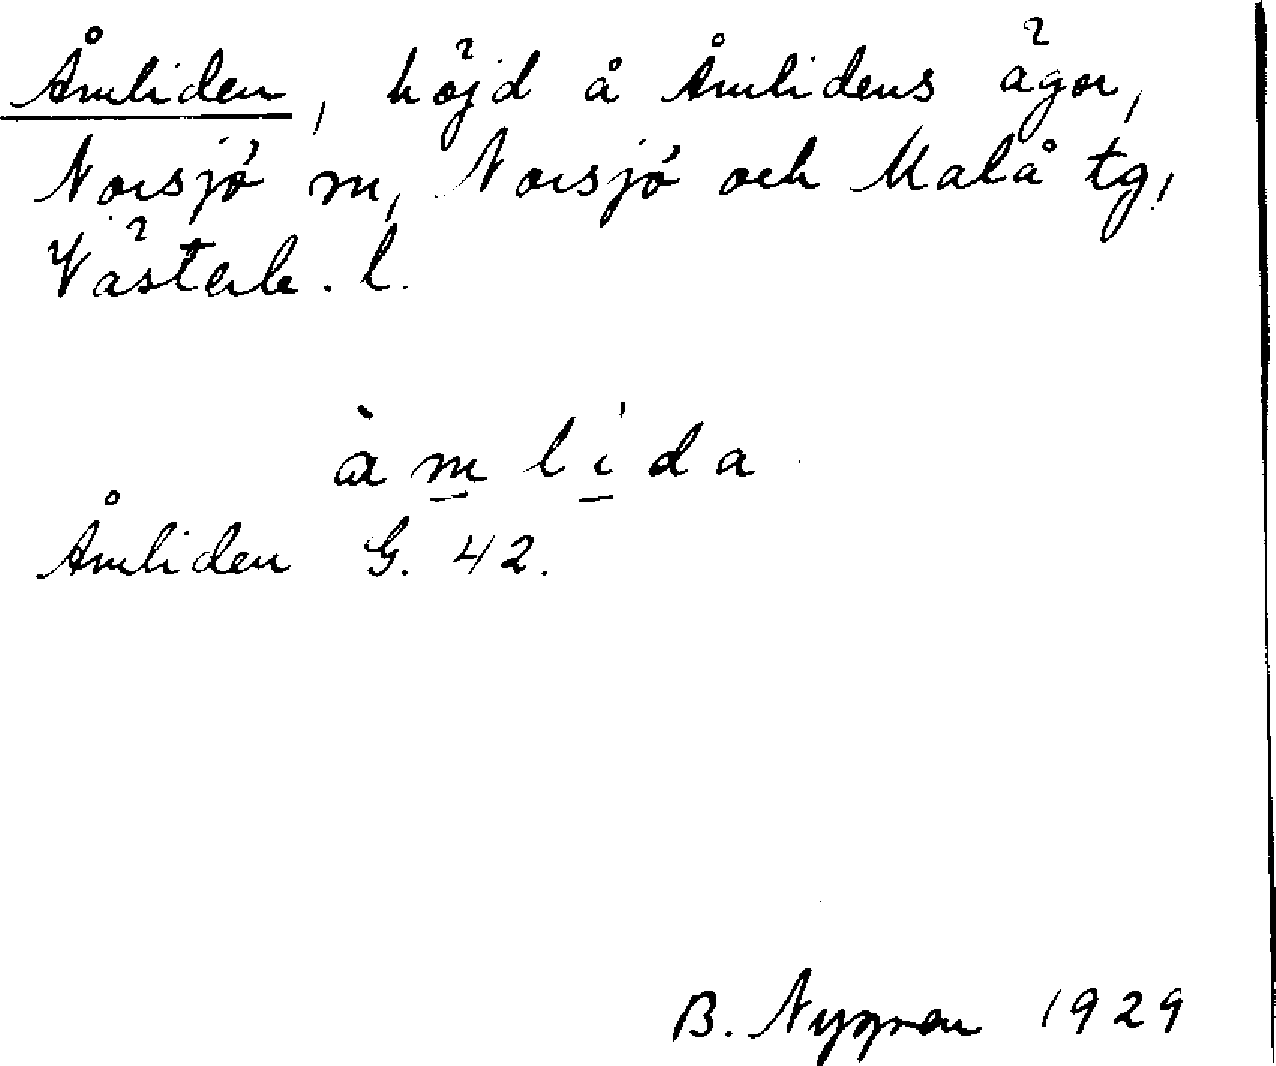 Åmliden, höjd å Åmlidens ägor,
Norsjö sn, Norsjö och Malå tg,
Västerb. l.
àm̲lí̲da
Åmliden G. 42.
B. Nygren 1929